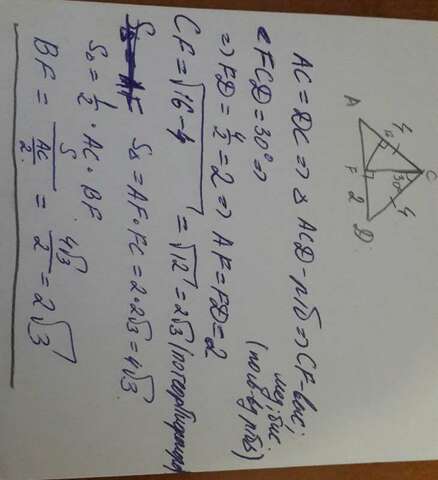 C
4 30° 4
B
A F 2 D
AC = DC => △ ACD - р/б => CF - выс;
мед; бис.
∠FCD = 30° => (по св-ву р/б △)
=> FD = 4/2 = 2 => AF = FD = 2
CF = √16-4 = √12 = 2√3 (по теор Пифагора)
S△ = AF
S△ = AF · FC = 2 · 2√3 = 4√3.
S△ = 1/2 · AC · BF
BF = S/(AC/2.) = 4√3/2 = 2√3